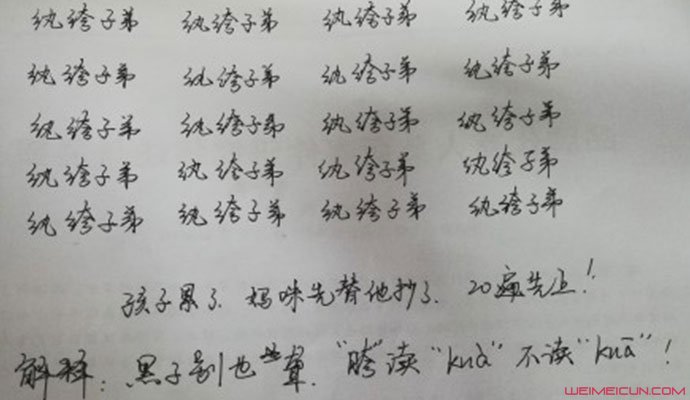 纨绔子弟 纨绔子弟 纨绔子弟 纨绔子弟
纨绔子弟 纨绔子弟 纨绔子弟 纨绔子弟
纨绔子弟 纨绔子弟 纨绔子弟 纨绔子弟
纨绔子弟 纨绔子弟 纨绔子弟 纨绔子弟
纨绔子弟 纨绔子弟 纨绔子弟 纨绔子弟
孩子累了. 妈咪先替他抄了. 20遍先上!
解释: 黑子别也. "胯"读"kuà"不读"kuā"!
WEIMEICUN.COM